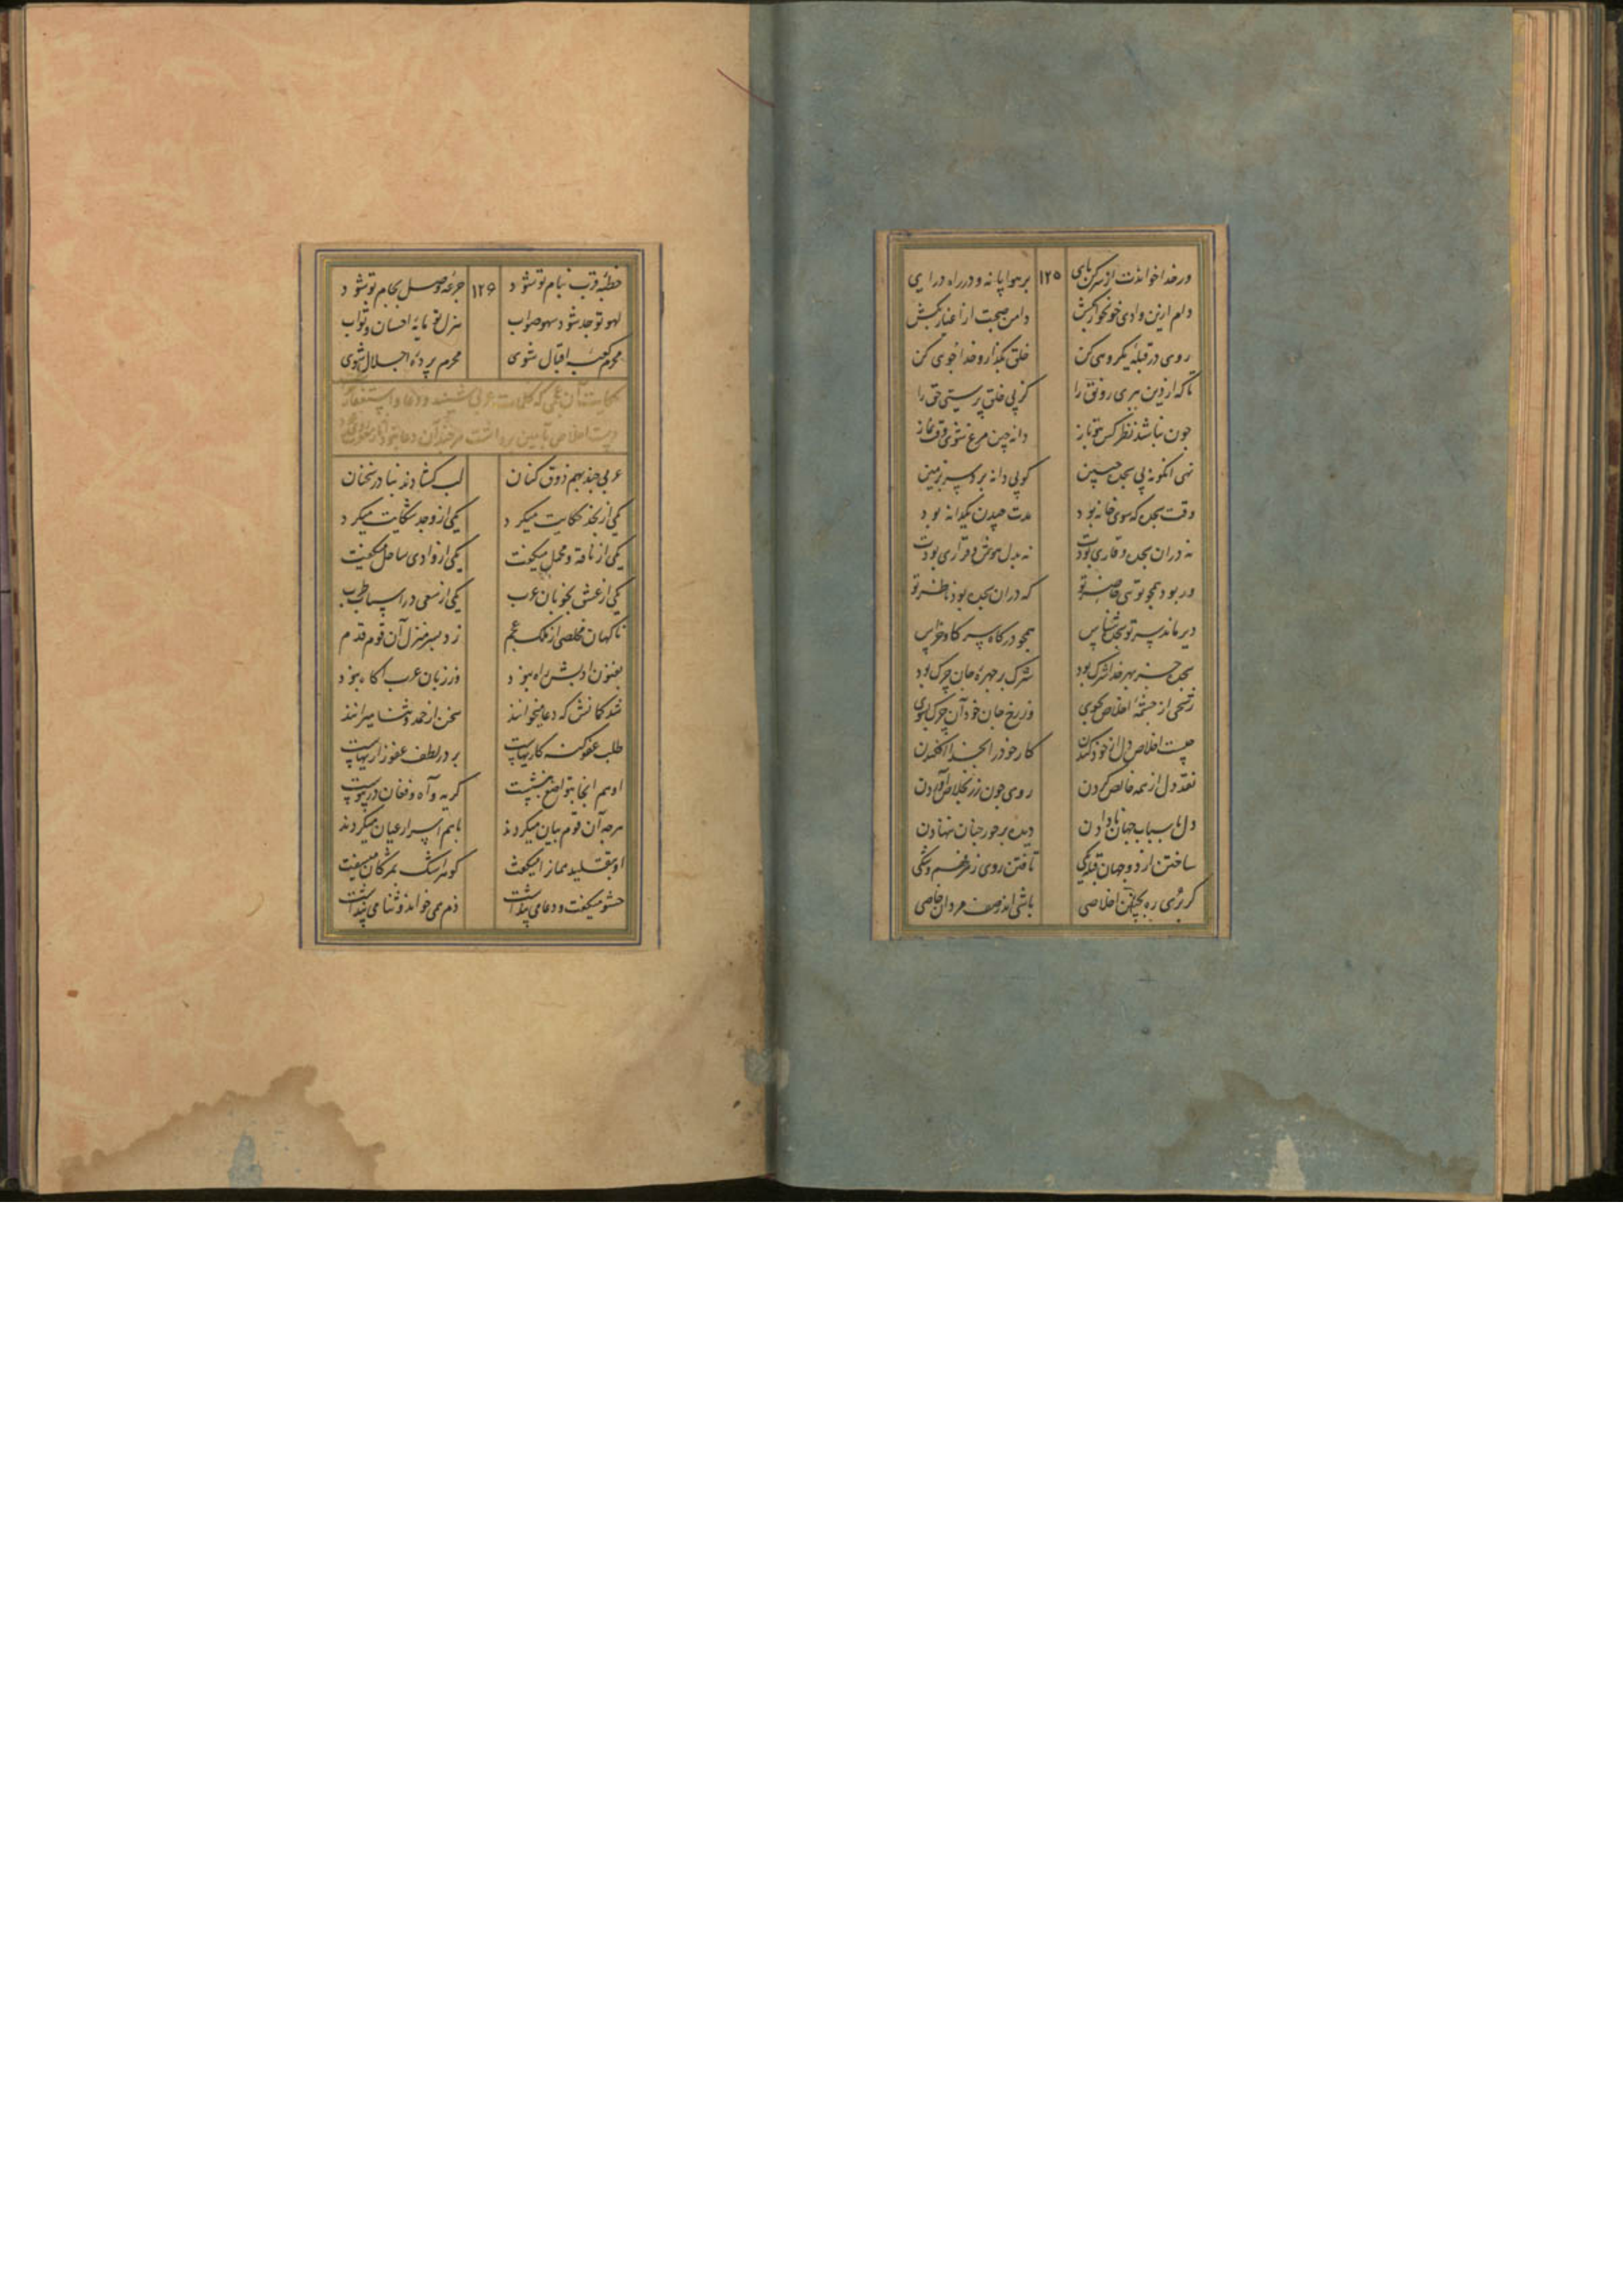 ور خدا خواندت از سر کن پای ۱۲۵ بر هوا پا نه و در راه درای
دلم ازین وادی خونخوار بکش دامن صحبت از اغیار بکش
روی در قبله یکرویی کن خلق بگذار و خدا جویی کن
تا که از دین ببری رونق را کز پی خلق پرستی حق را
چون نباشد نظر کس بتو باز دانه چین مرغ شوی وقت نماز
نهی انگونه پی سجده جبین کو پی دانه برد سر بزمین
وقت سجده که سوی خانه بود مدت چیدن یکدانه بود
نه در آن سجده وقاری بودت نه بدل هوش و قراری بودت
ور بود همچو توئی حاضر تو که در آن سجده بود ناظر تو
دیر ماند سر تو سجده شناس همچو در کاه سر کاو خراس
سجده جز بهر خدا شرک بود شرک بر چهره جان چرک بود
رشحی از چشمه اخلاص بجوی وز رخ جان خود آن چرک بشوی
چیست اخلاص دل از خود کندن کار خود را بخدا افکندن
نقد دل از همه خالص کردن روی چون زر بخلاص آوردن
دل باسباب جهان نادادن دیده بر حور جنان ننهادن
ساختن از دو جهان قبله یکی تافتن روی ز هر شکی
گر بری ره بچنین اخلاصی باشی اندر صف مردان خاصی
خطبه قرب بنام تو شود ۱۲۶ جرعه وصل بجام تو شود
لهو تو جد شود سهو صواب هزل تو مایه احسان و ثواب
محرم کعبه اقبال شوی محرم پرده اجلال شوی
حکایت آن عجمی که کلمات عربی شنید و دعا و استغفار
دست اخلاص بآمین برداشت هر چند آن دعا نبود
عربی چند بهم ذوق کنان لب گشادند بنادر سخنان
یکی از نجد حکایت میکرد یکی از وجد شکایت میکرد
یکی از ناقه و محمل میگفت یکی از وادی و ساحل میگفت
یکی از عشق بخوبان عرب یکی از سعی در اسباب طرب
ناگهان مخلصی از ملک عجم زد بسر منزل آن قوم قدم
بفنون ادبش راه نبود وز زبان عرب آگاه نبود
شد گمانش که دعا میخوانند سخن از حمد و ثنا میرانند
طلب عفو گنه کاریهاست بر در لطف عفو زاریهاست
او هم آنجا بتواضع بنشست گریه و آه و فغان در پیوست
هر چه آن قوم بیان میکردند باهم اسرار عیان میکردند
او بتقلید همانرا میگفت گوهر اشک بمژگان میسفت
حشو میگفت و دعا می پنداشت ذم همی خواند و ثنا می پنداشت